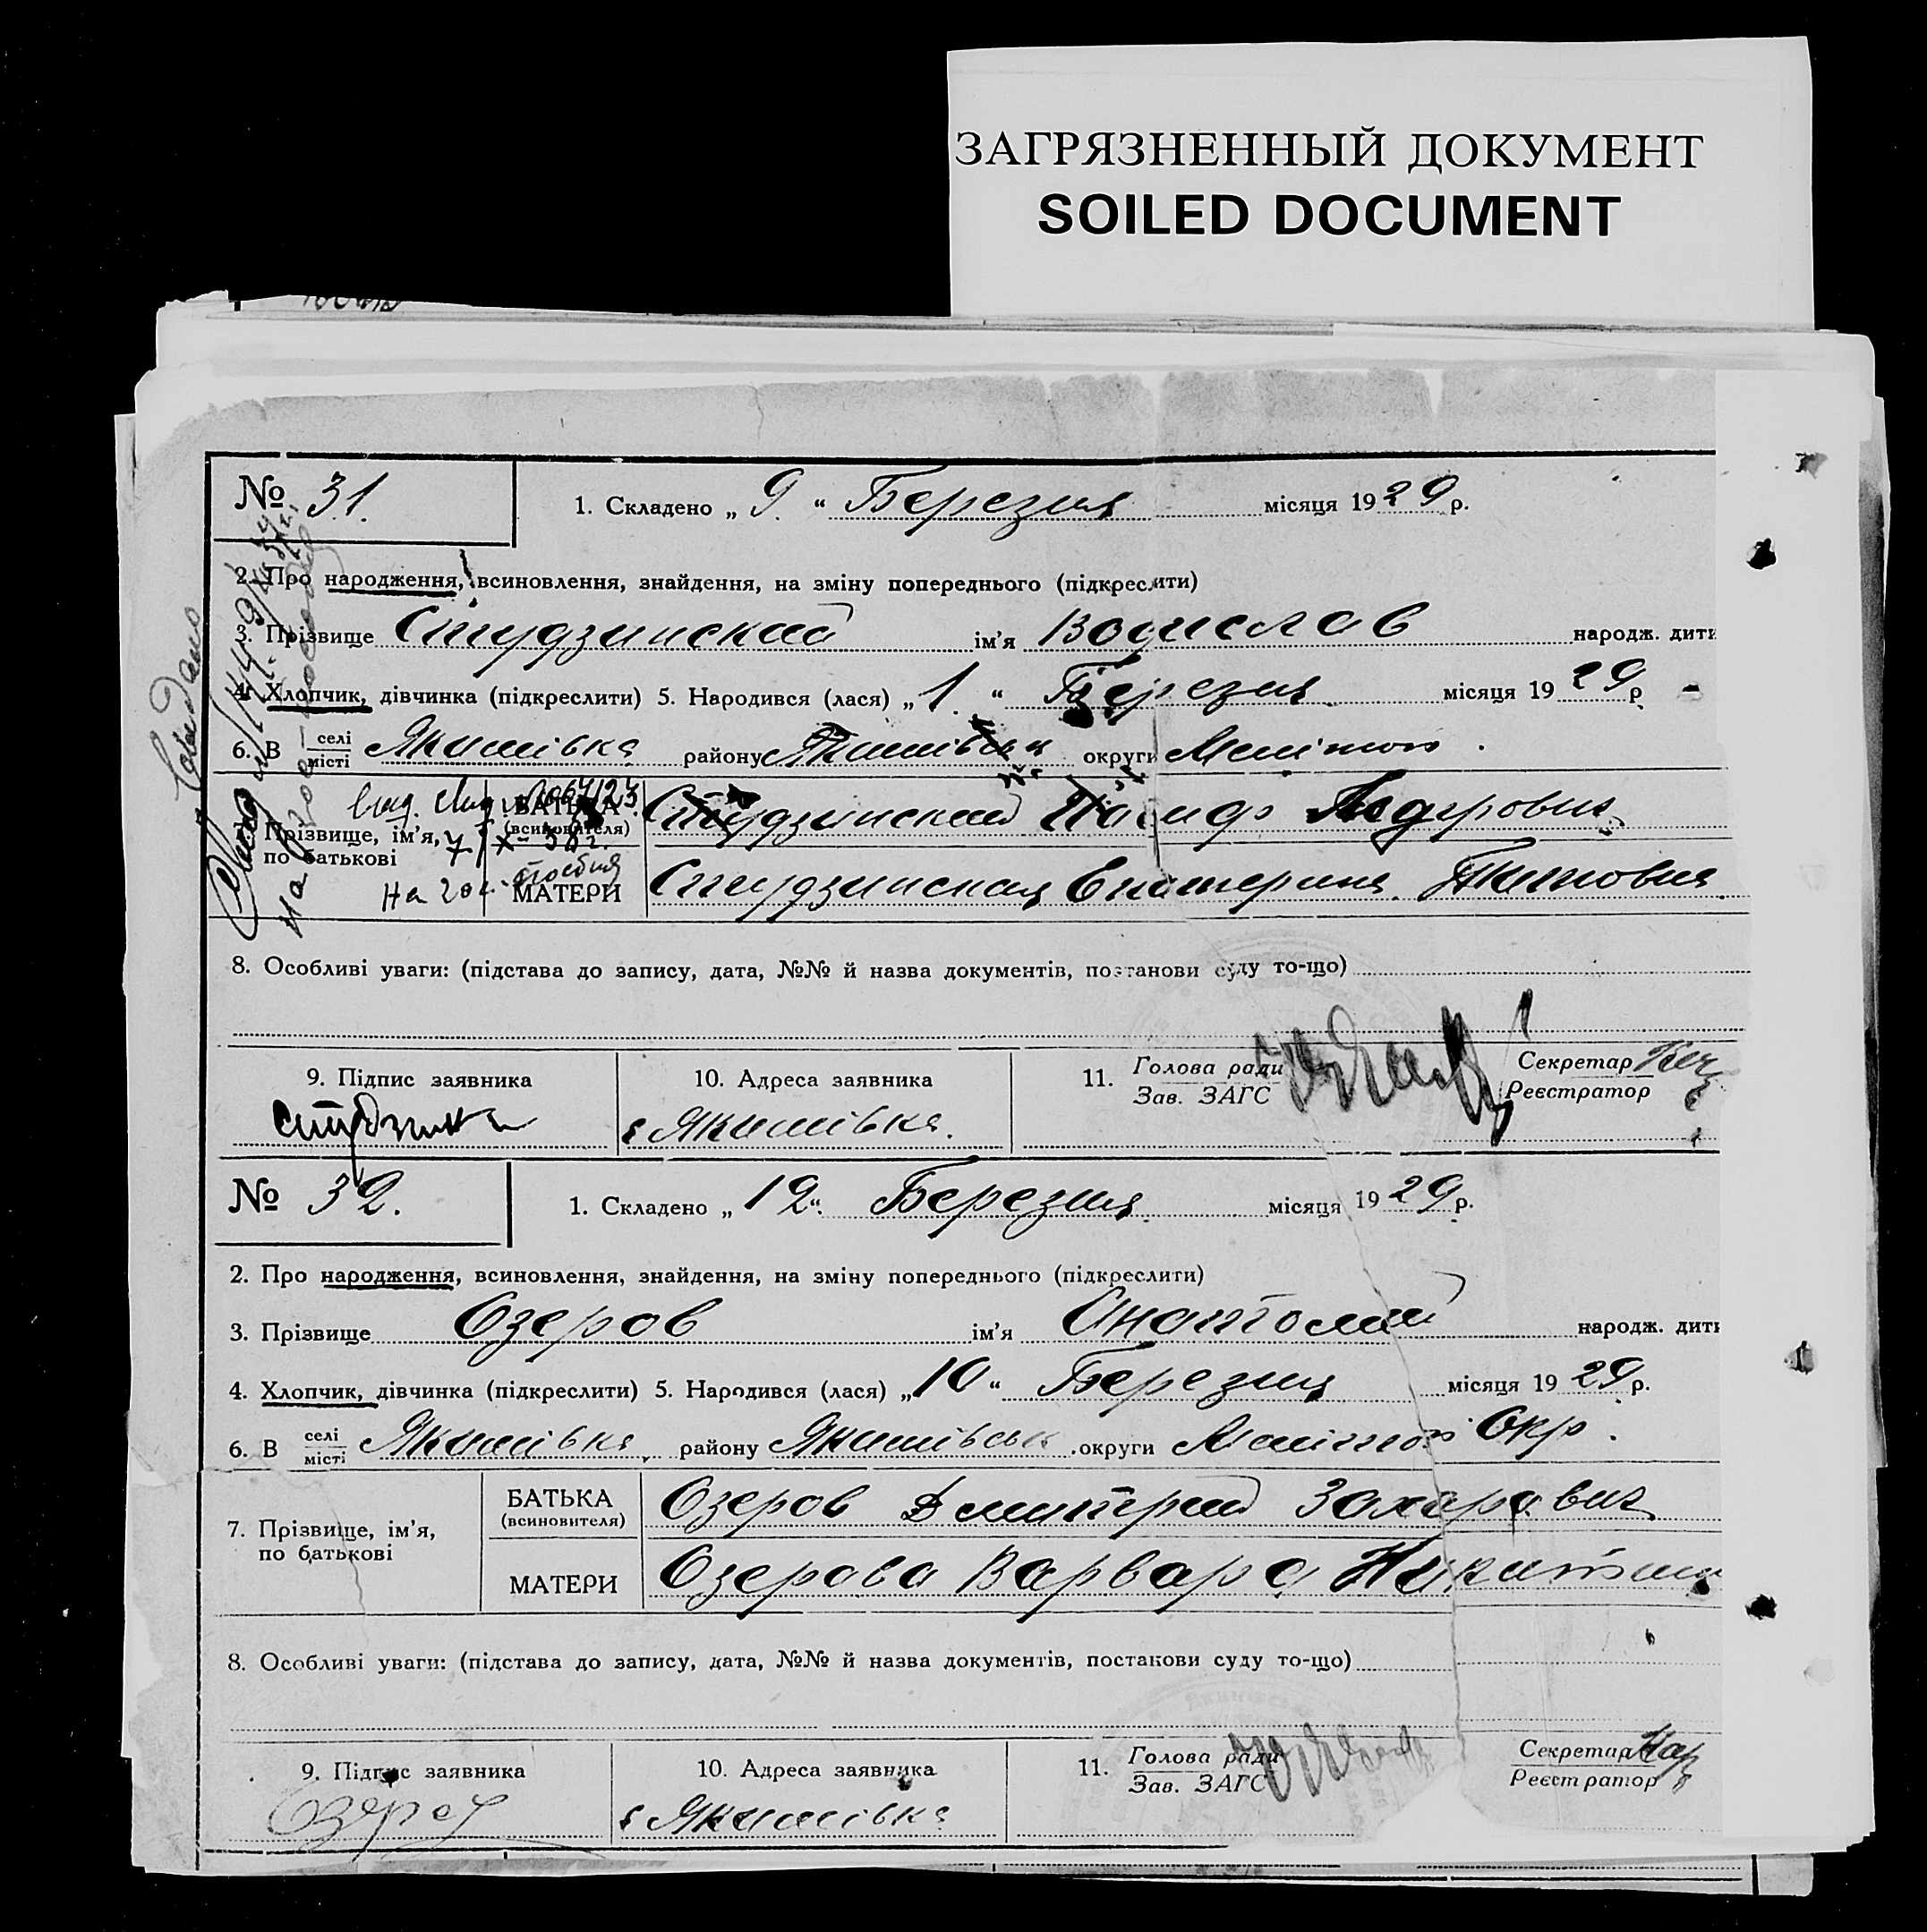 ЗАГРЯЗНЕННЫЙ ДОКУМЕНТ
SOILED DOCUMENT
№ 31.
1. Складено „ 9. “ Березня місяця 1929 р.
2. Про народження, всиновлення, знайдення, на зміну попереднього (підкреслити)
3. Прізвище Студзинский ім’я Водислав народж. дити
4. Хлопчик, дівчинка (підкреслити) 5. Народився (лася) „ 1. “ Березня місяця 1929 р
6. В селі місті Якимівка району Якимівськ округи Меліток.
7. Прізвище, ім’я, по батькові
БАТЬКА (всиновителя) Студзинский
МАТЕРИ Студзинская Екатерина Титовна
8. Особливі уваги: (підстава до запису, дата, №№ й назва документів, постанови суду то-що)
9. Підпис заявника
10. Адреса заявника
11. Голова ради Зав. ЗАГС
Секретар Реєстратор
с Якимівка.
№ 32.
1. Складено „ 12 “ Березня місяця 1929 р.
2. Про народження, всиновлення, знайдення, на зміну попереднього (підкреслити)
3. Прізвище Озеров ім’я Анатолий народж. дити
4. Хлопчик, дівчинка (підкреслити) 5. Народився (лася) „ 10 “ Березня місяця 1929 р.
6. В селі місті Якимівка району Якимівськ округи Меліток Окр.
7. Прізвище, ім’я, по батькові
БАТЬКА (всиновителя) Озеров Дмитрий Захарович
МАТЕРИ Озерова Варвара Никитин
8. Особливі уваги: (підстава до запису, дата, №№ й назва документів, постанови суду то-що)
9. Підпис заявника
10. Адреса заявника
11. Голова ради Зав. ЗАГС
Секретар Реєстратор
Озеров
с Якимівка